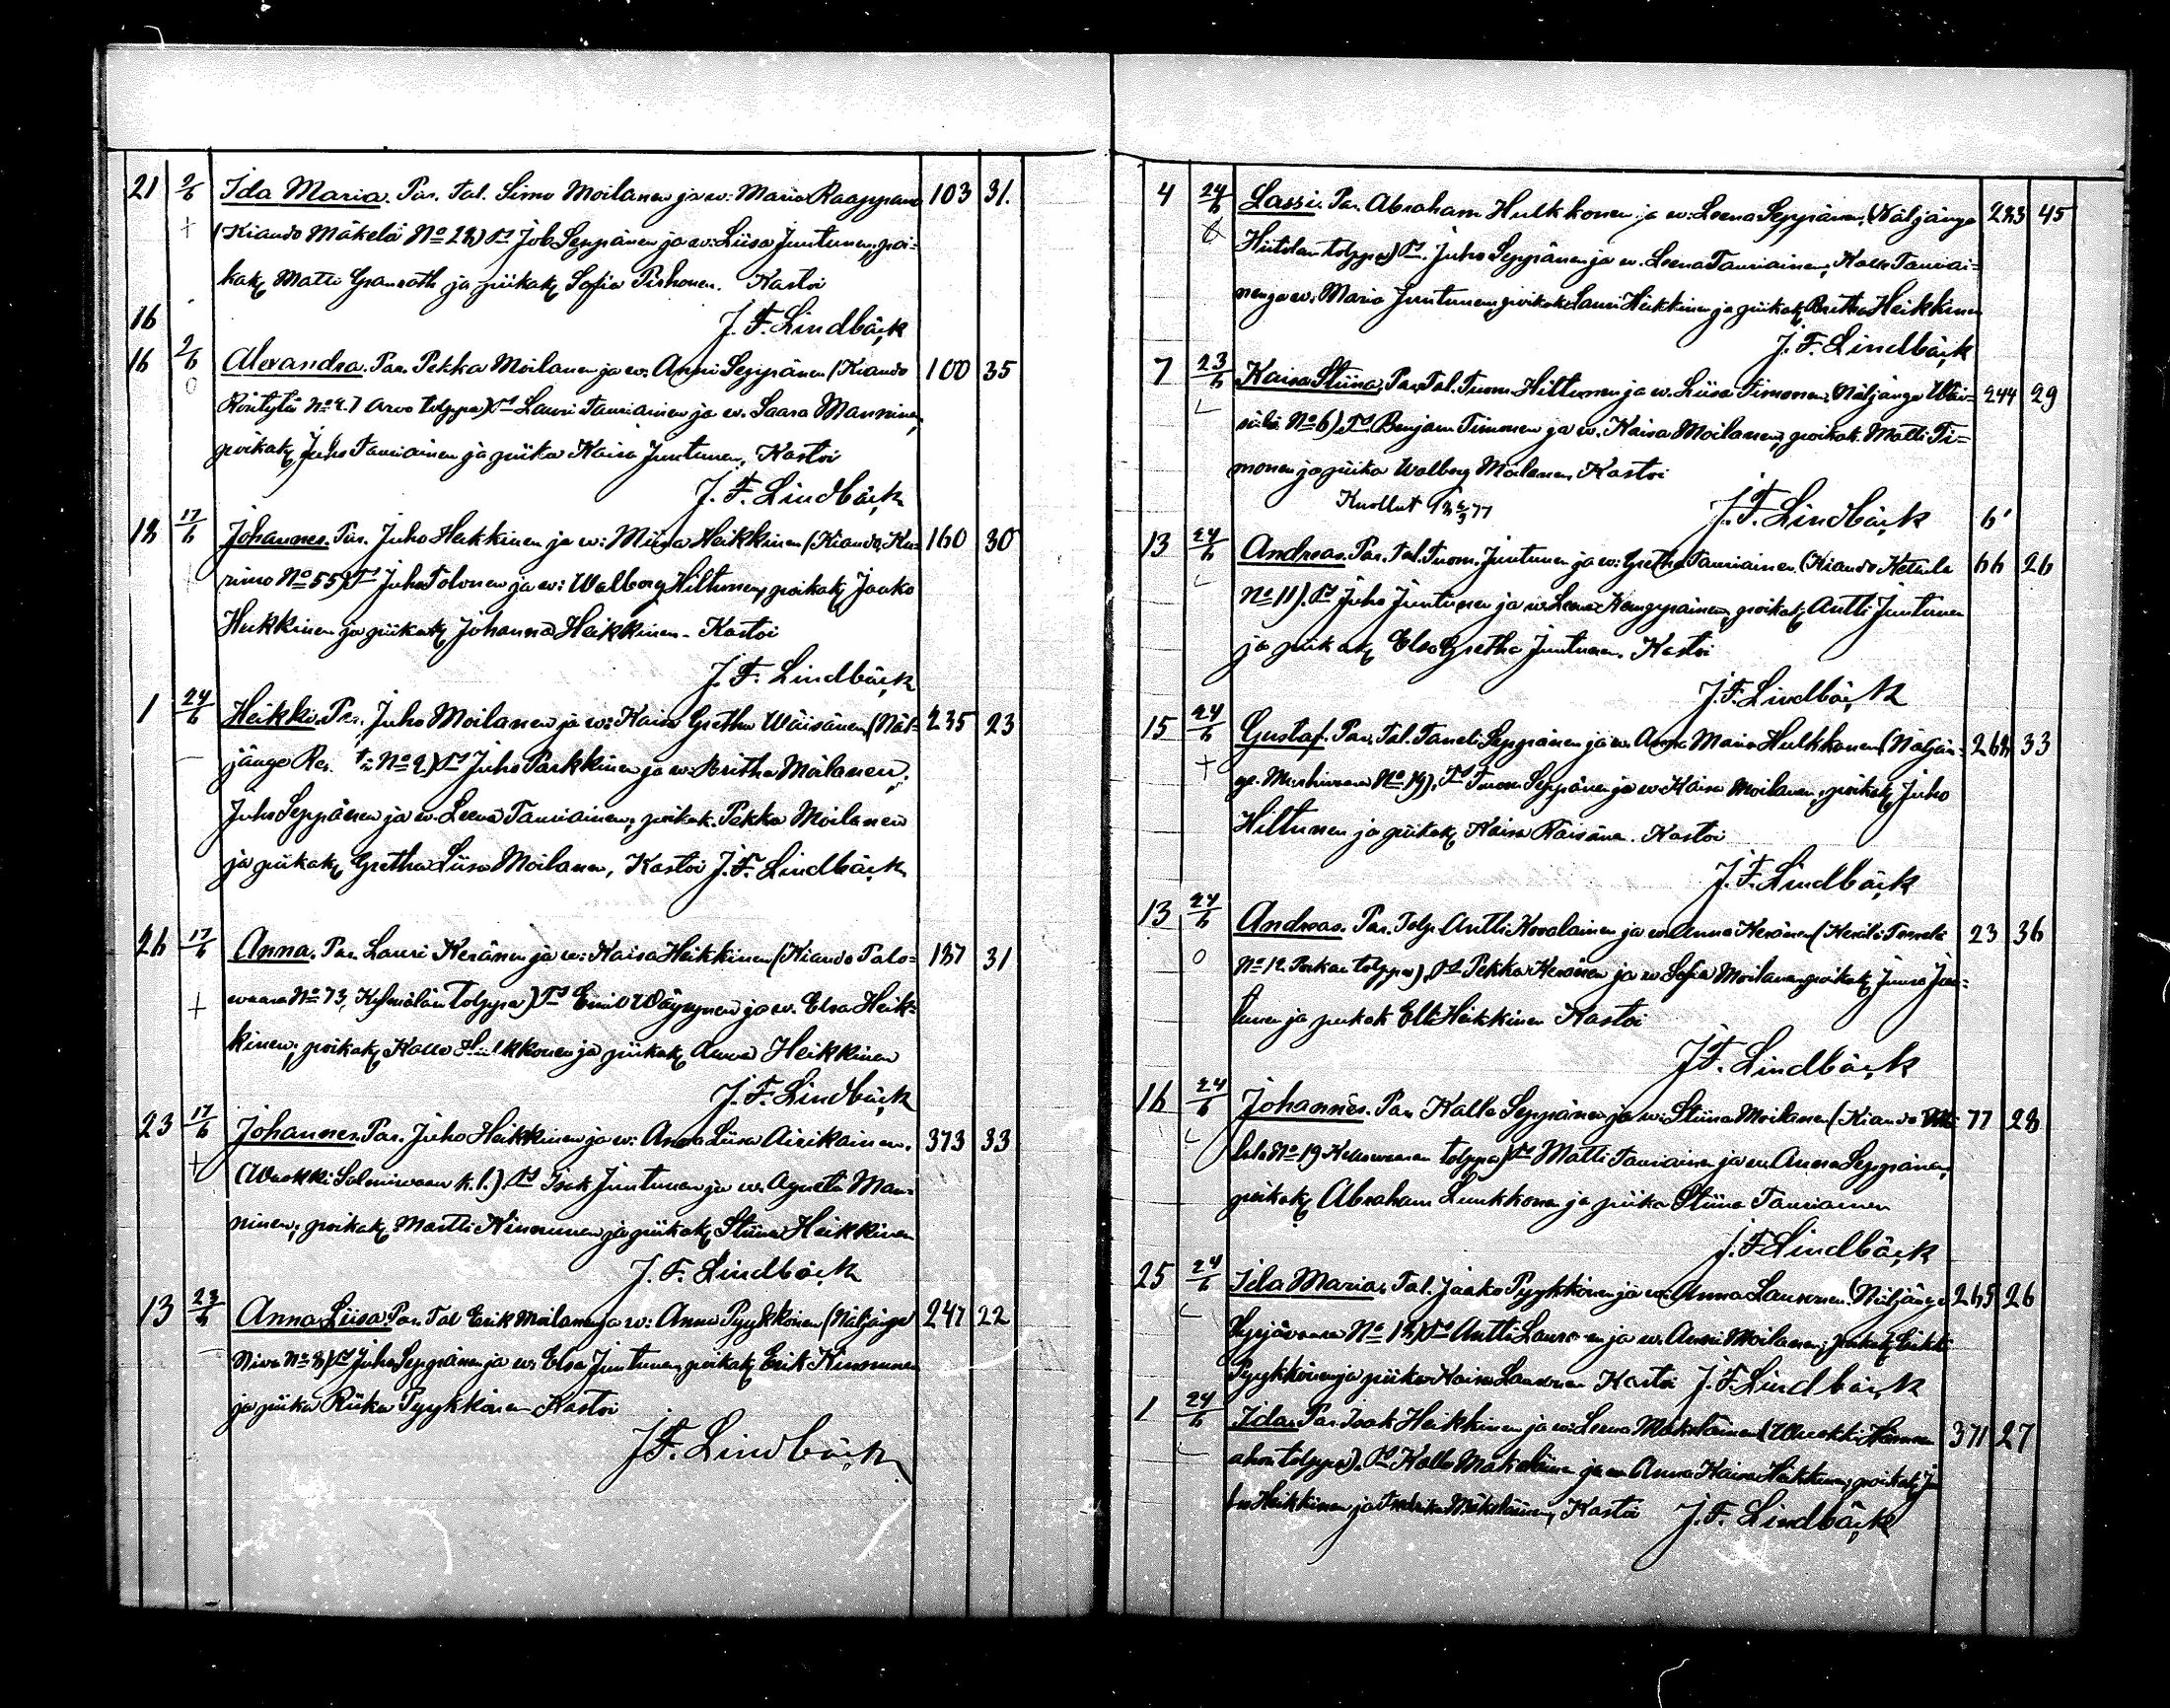 21 2/6 Ida Maria. Par. Tal. Simo Moilanen ja w: Maria Raappana 103 31.
+ (Kiando Mäkelä No 28) Ts Job Seppänen ja w: Liisa Juntunen, poi-
kak Matti Granroth ja piikak Sofia Pirhonen. Kastoi
16 J. F. Lindbäck
16 2/6 Alexandra. Par. Pekka Moilanen ja w. Anni Seppänen (Kiando 100 35
0 No 27 Arvo tolppa) Ts Lauri Tauriainen ja w. Saara Manninen,
poikak Juho Tauriainen ja piika Kaisa Juntunen, Kastoi
J. F. Lindbäck
18 17/6 Johannes. Par. Juho Heikkinen ja w: Miina Heikkinen (Kiando, Ku- 160 30
rimo No 55) Ts Juho Tolonen ja w: Walborg Hiltunen, poikak Jaako
Heikkinen ja piikak Johanna Heikkinen - Kastoi
J. F. Lindbäck
1 24/6 Heikki. Par. Juho Moilanen ja w: Kaisa Gretha Wäisänen (Näl- 235 23
jänge No 2.) Ts Juho Parkkinen ja w: Britha Moilanen,
Juho Seppänen ja w. Leena Tauriainen, poikak. Pekka Moilanen
ja piikak Gretha Liisa Moilanen, Kastoi J. F. Lindbäck
26 17/6 Anna. Par. Lauri Keränen ja w: Kaisa Heikkinen (Kiando Palo- 137 31
+ waara No 73, Kylmälän tolppa) Ts Emil Wäyrynen ja w. Elsa Heik-
kinen, poikak Kalle Hulkkonen ja piikak Anna Heikkinen
J. F. Lindbäck
23 17/6 Johannes. Par. Juho Heikkinen ja w: Anna Liisa Airikainen. 373 33
+ (Wuokki Salmiwaara k. l.) Ts Isak Juntunen ja w. Agneta Man-
ninen, poikak Martti Kinnunen ja piikak Stiina Heikkinen
J. F. Lindbäck
13 23/6 Anna Liisa. Par. Tal Erik Moilanen ja w: Anna Pyykkönen (Näljänge 247 22
Niva No 8) Ts Juho Seppänen ja w: Elsa Juntunen, poikak Erik Kinnunen
ja piika Riika Pyykkönen Kastoi
J. F. Lindbäck
4 24/6 Lassi. Par. Abraham Hulkkonen ja w: Leena Seppänen. (Näljänge 283 45
Hiitolan tolppa) Ts. Juho Seppänen ja w. Leena Tauriainen, Kalle Tauriai-
nen ja w. Maria Juntunen, poikak Lauri Heikkinen ja piikak Britha Heikkinen
J. F. Lindbäck
7 23/6 Kaisa Stiina. Par. Tal. Tuom. Hiltunen ja w. Liisa Timonen, Näljänge Wäi- 244 29
sälä No 6) Ts Benjam Timonen ja w. Kaisa Moilanen, poikak. Matti Ti-
monen ja piika Walborg Moilanen, Kastoi
Kuollut
J. F. Lindbäck 6'
13 24/6 Andreas. Par. Tal. Tuom. Juntunen ja w: Gretha Tauriainen. (Kiando Ketola 66 26
No 11). Ts Juho Juntunen ja w. Leena Kemppainen, poikak Antti Juntunen
ja piikak Elsa Gretha Juntunen. Kastoi
J. F. Lindbäck
15 24/6 Gustaf. Par. Tal. Taneli Seppänen ja w. Anna Maria Hulkkonen (Näljän- 268 33
+ No 19), Ts Tuom. Seppänen ja w. Kaisa Moilanen, poikak Juho
Hiltunen ja piikak Kaisa Räisänen. Kastoi
J. F. Lindbäck
13 24/6 Andreas. Par. Tolp. Antti Kovalainen ja w. Anna Keränen 23 36
0 No 12. tolppa), Ts Pekka Keränen ja w Sofia Moilanen, poikak Jun-
tunen ja piikak Elli Heikkinen Kastoi
J. F. Lindbäck
16 24/6 Johannes. Par. Kalle Seppänen ja w: Stiina Moilanen (Kiando 77 28
No 19 tolppa) Ts Matti Tauriainen ja w. Anna Seppänen,
poikak Abraham Lunkkonen ja piika Stiina Tauriainen
J. F. Lindbäck
25 24/6 Ida Maria. Tal. Jaako Pyykkönen ja w. Anna Lauronen. (Näljänge 265 26
Syrjävaara No 18) Ts Antti Lauronen ja w. Anna Moilanen, poikak Heikki
Pyykkönen ja piika Kaisa Lauronen Kastoi J. F. Lindbäck
1 24/6 Ida. Par. Isak Heikkinen ja w: Leena Määttäinen (Wuokki 371 27
ahon tolppa). Ts Kalle ja w. Anna Kaisa Heikkinen, poikak Ju-
ho Heikkinen ja Kastoi J. F. Lindbäck